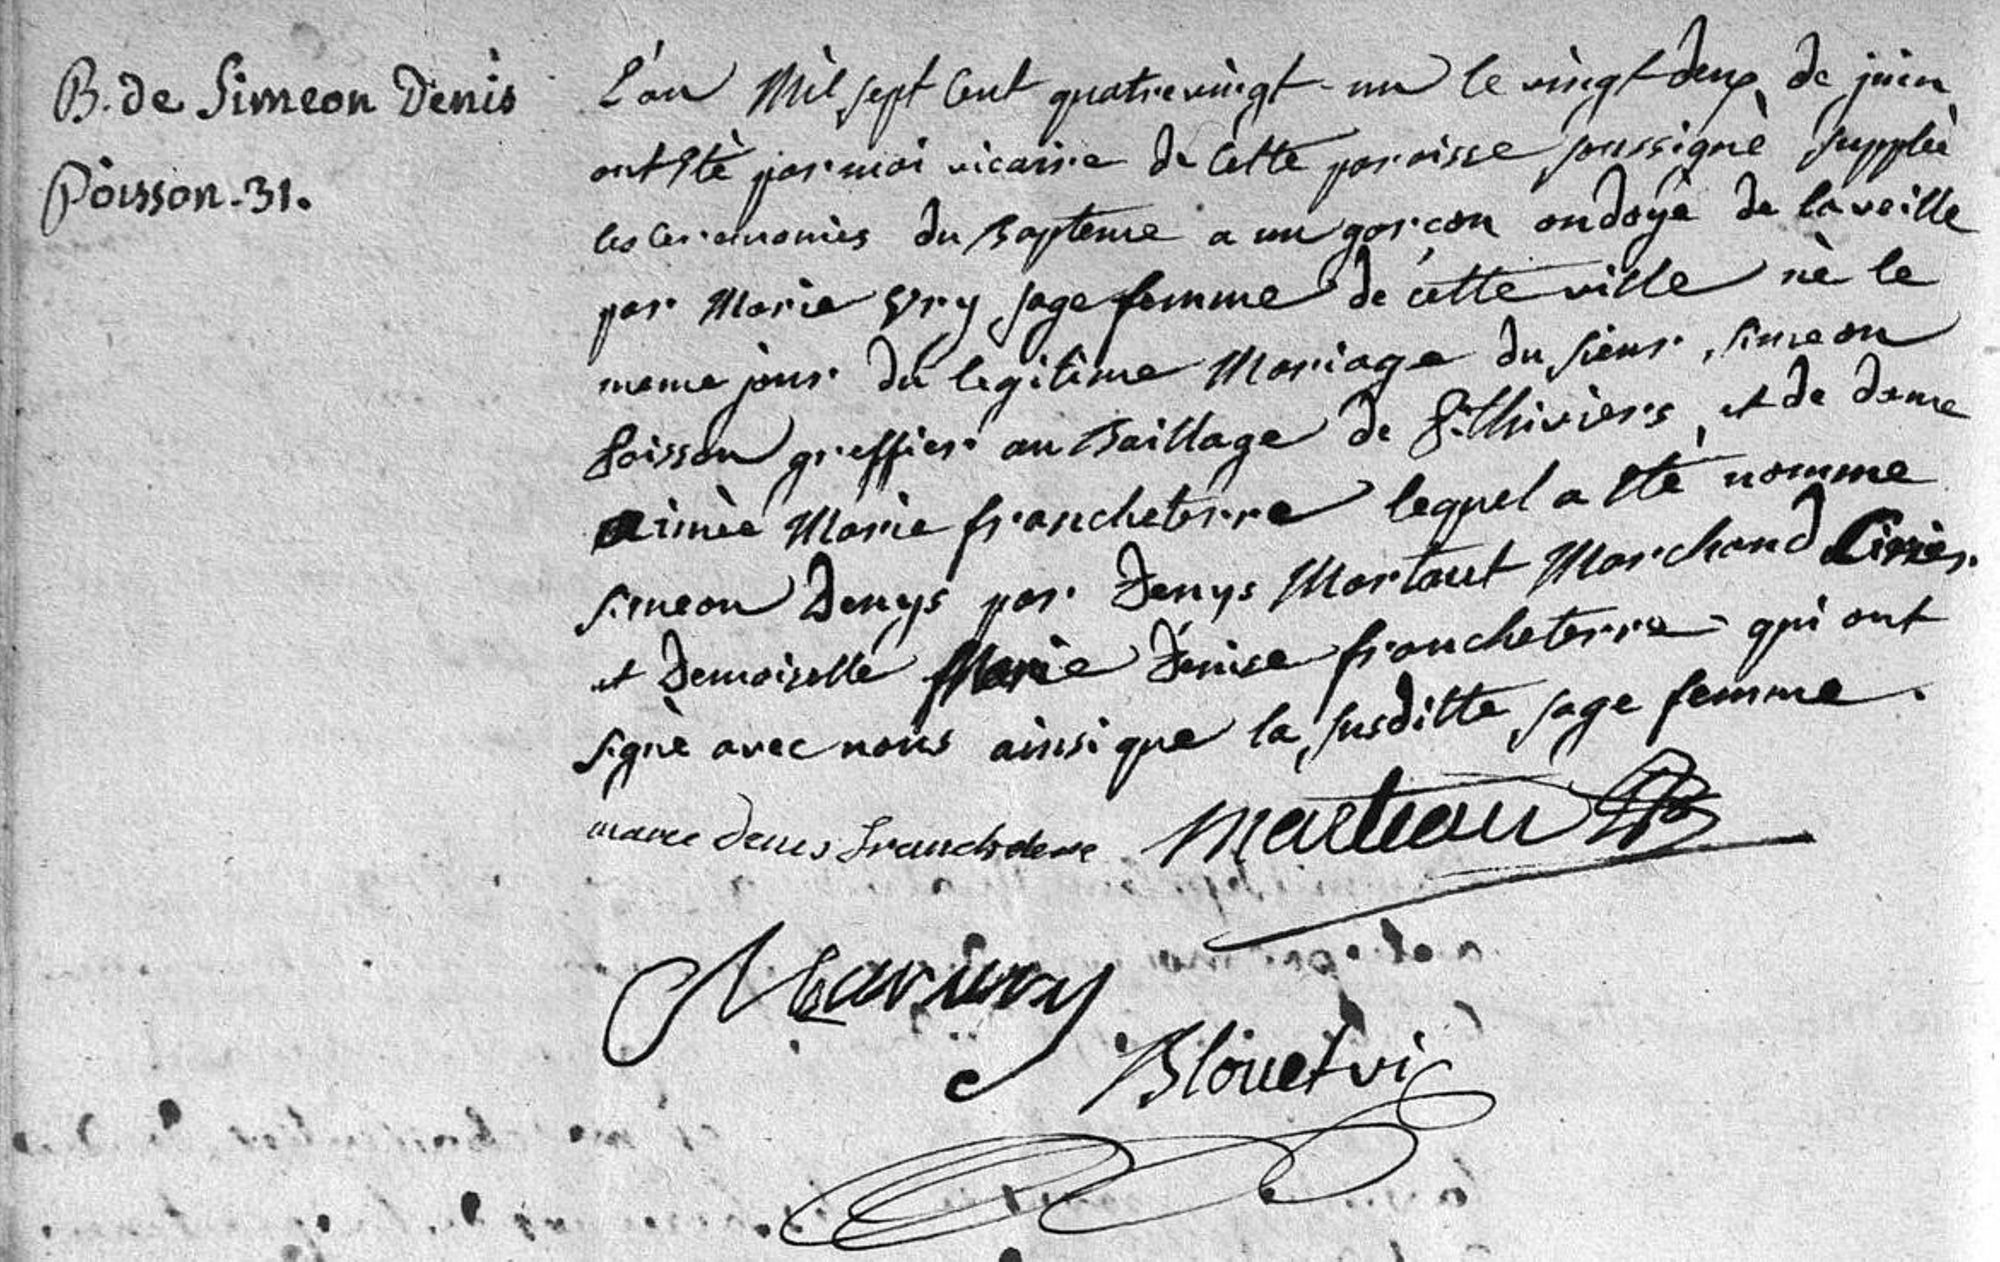 B. de Simeon Denis
Poisson. 31.
L'an Mil sept Cent quatrevingt-un le vingt deux de juin
ont Eté par moi vicaire de Cette paroisse soussigné supplée
les Ceremonies du Bapteme a un garçon ondoyé de la veille
par Marie Ury sage femme de cette ville né le
meme jour du legitime Mariage du sieur Simeon
Poisson greffier au Baillage de Pithiviers et de dame
aimée Marie francheterre lequel a Eté nommé
simeon Denys par Denys Martaut Marchand Cirier
et Demoiselle Marie Denise francheterre qui ont
signé avec nous ainsi que la susditte sage femme.
marie denis francheterre Marteau
Mariury
Blouet vic